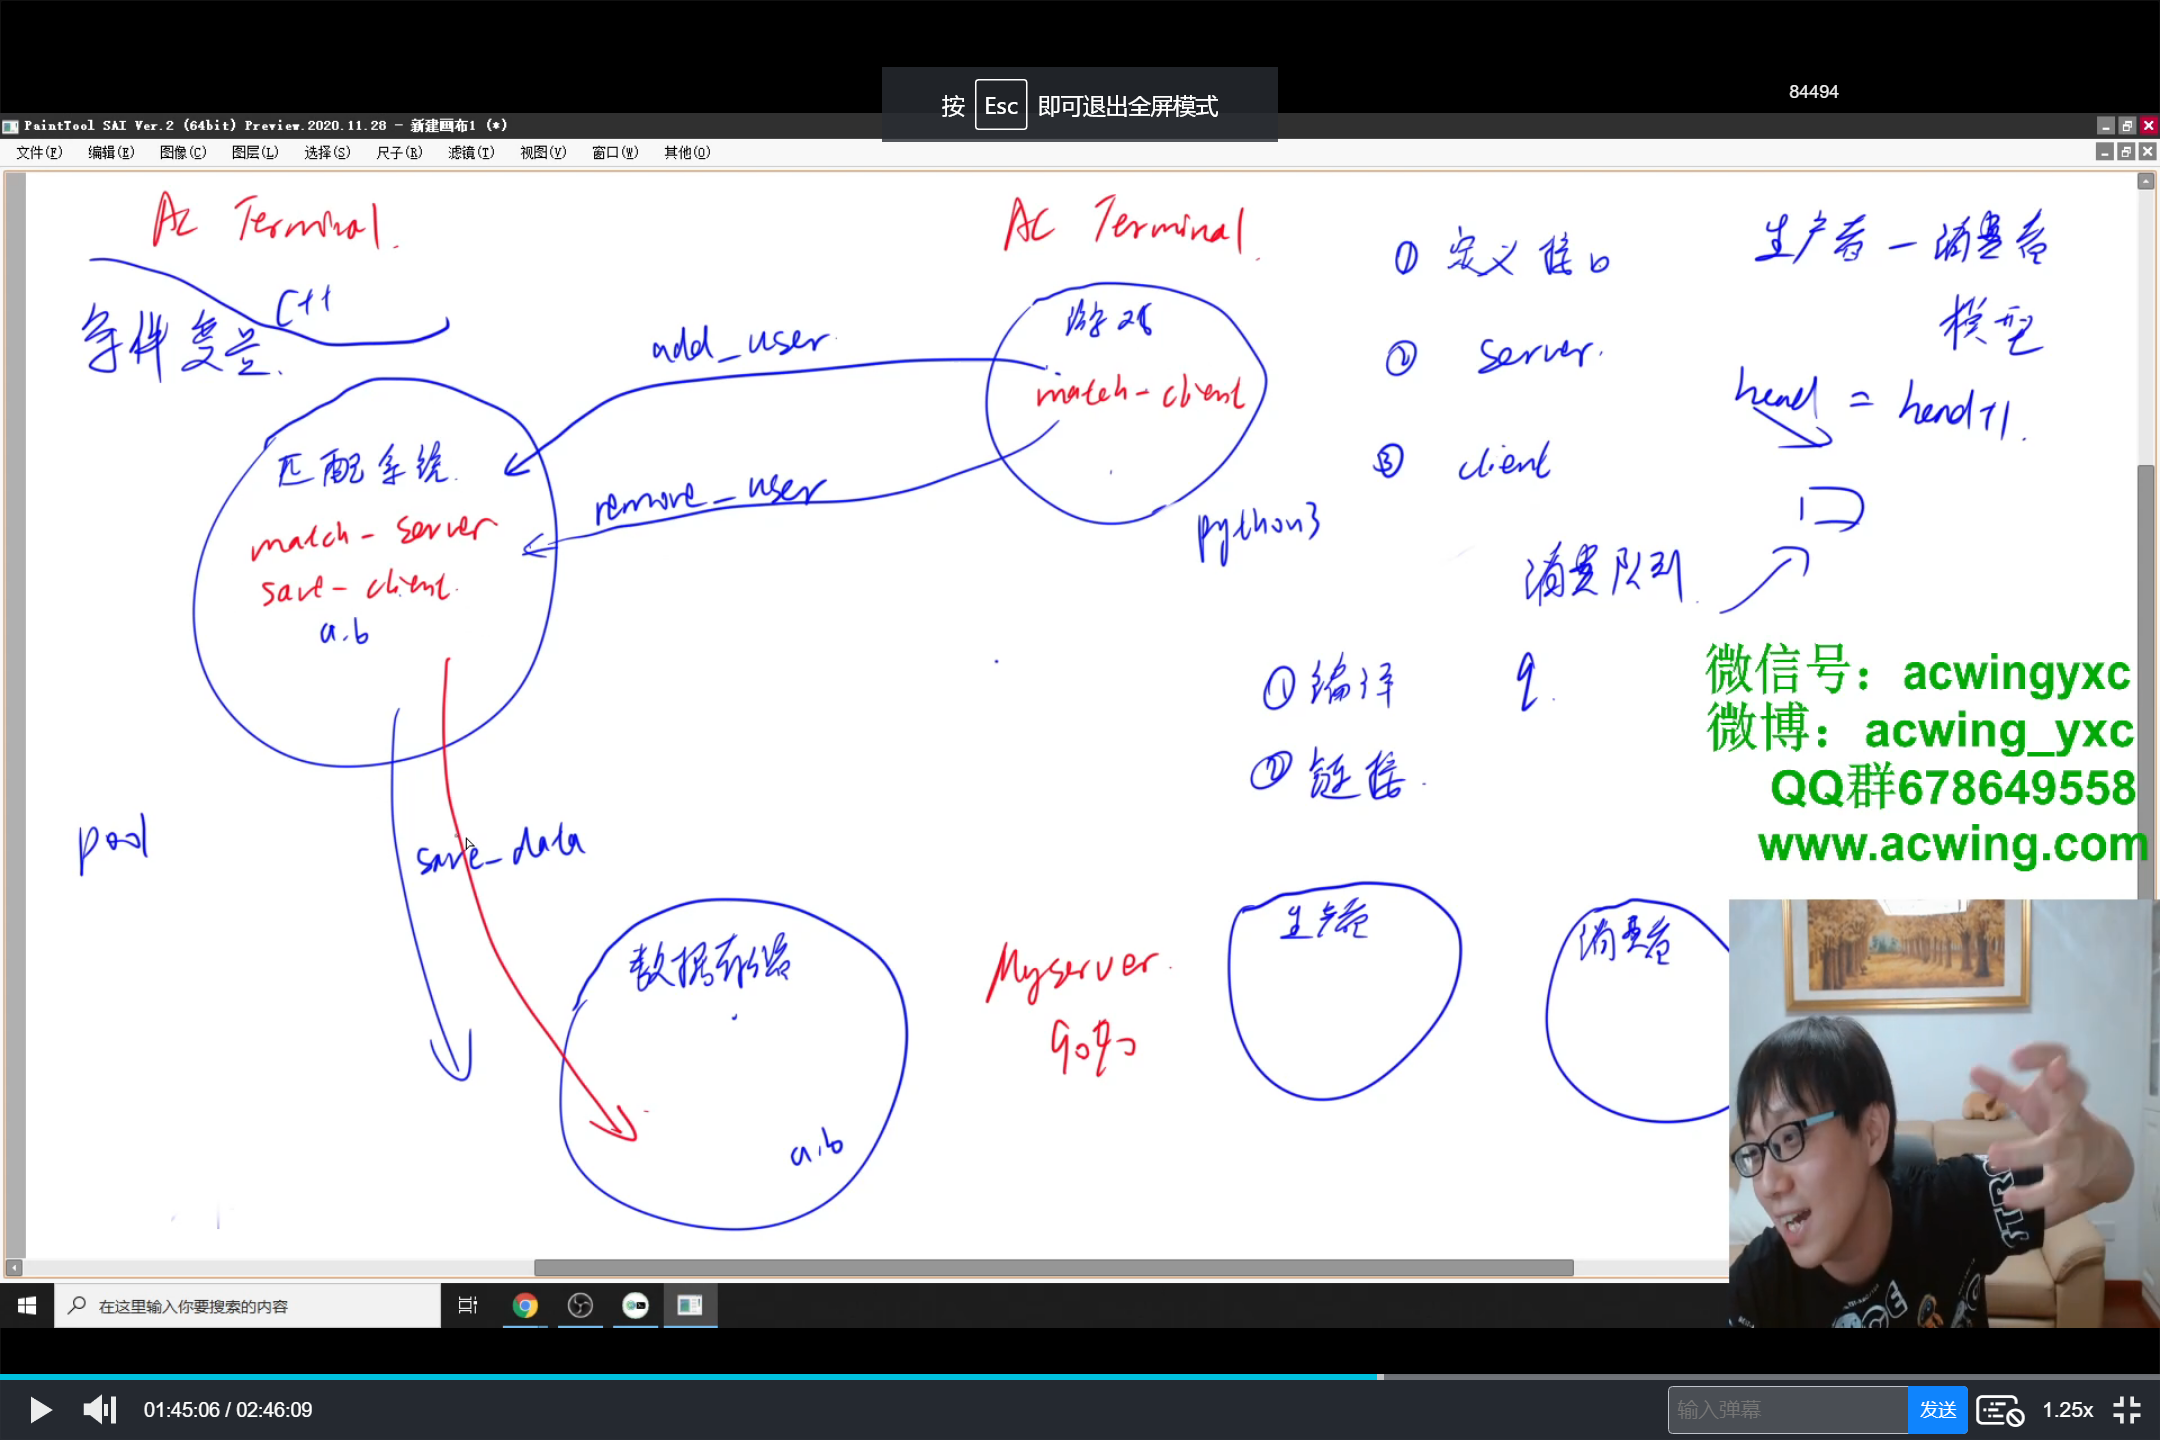 84494
按 Esc 即可退出全屏模式
PaintTool SAI Ver.2 (64bit) Preview.2020.11.28 - 新建画布1 (*)
文件(F) 编辑(E) 图像(C) 图层(L) 选择(S) 尺子(R) 滤镜(T) 视图(V) 窗口(W) 其他(O)
AC Terminal.
AC Terminal.
C++
条件变量.
匹配系统.
match-server
save-client.
a.b
add_user.
remove_user
游戏
match-client
python3
① 定义接口
② server.
③ client
生产者-消费者
模型
head = head+1.
消费队列.
q.
① 编译
② 链接.
pool
save_data
数据存储
a.b
Myserver.
生产者
消费者
微信号：acwingyxc
微博：acwing_yxc
QQ群678649558
www.acwing.com
在这里输入你要搜索的内容
01:45:06 / 02:46:09
输入弹幕 发送 1.25x